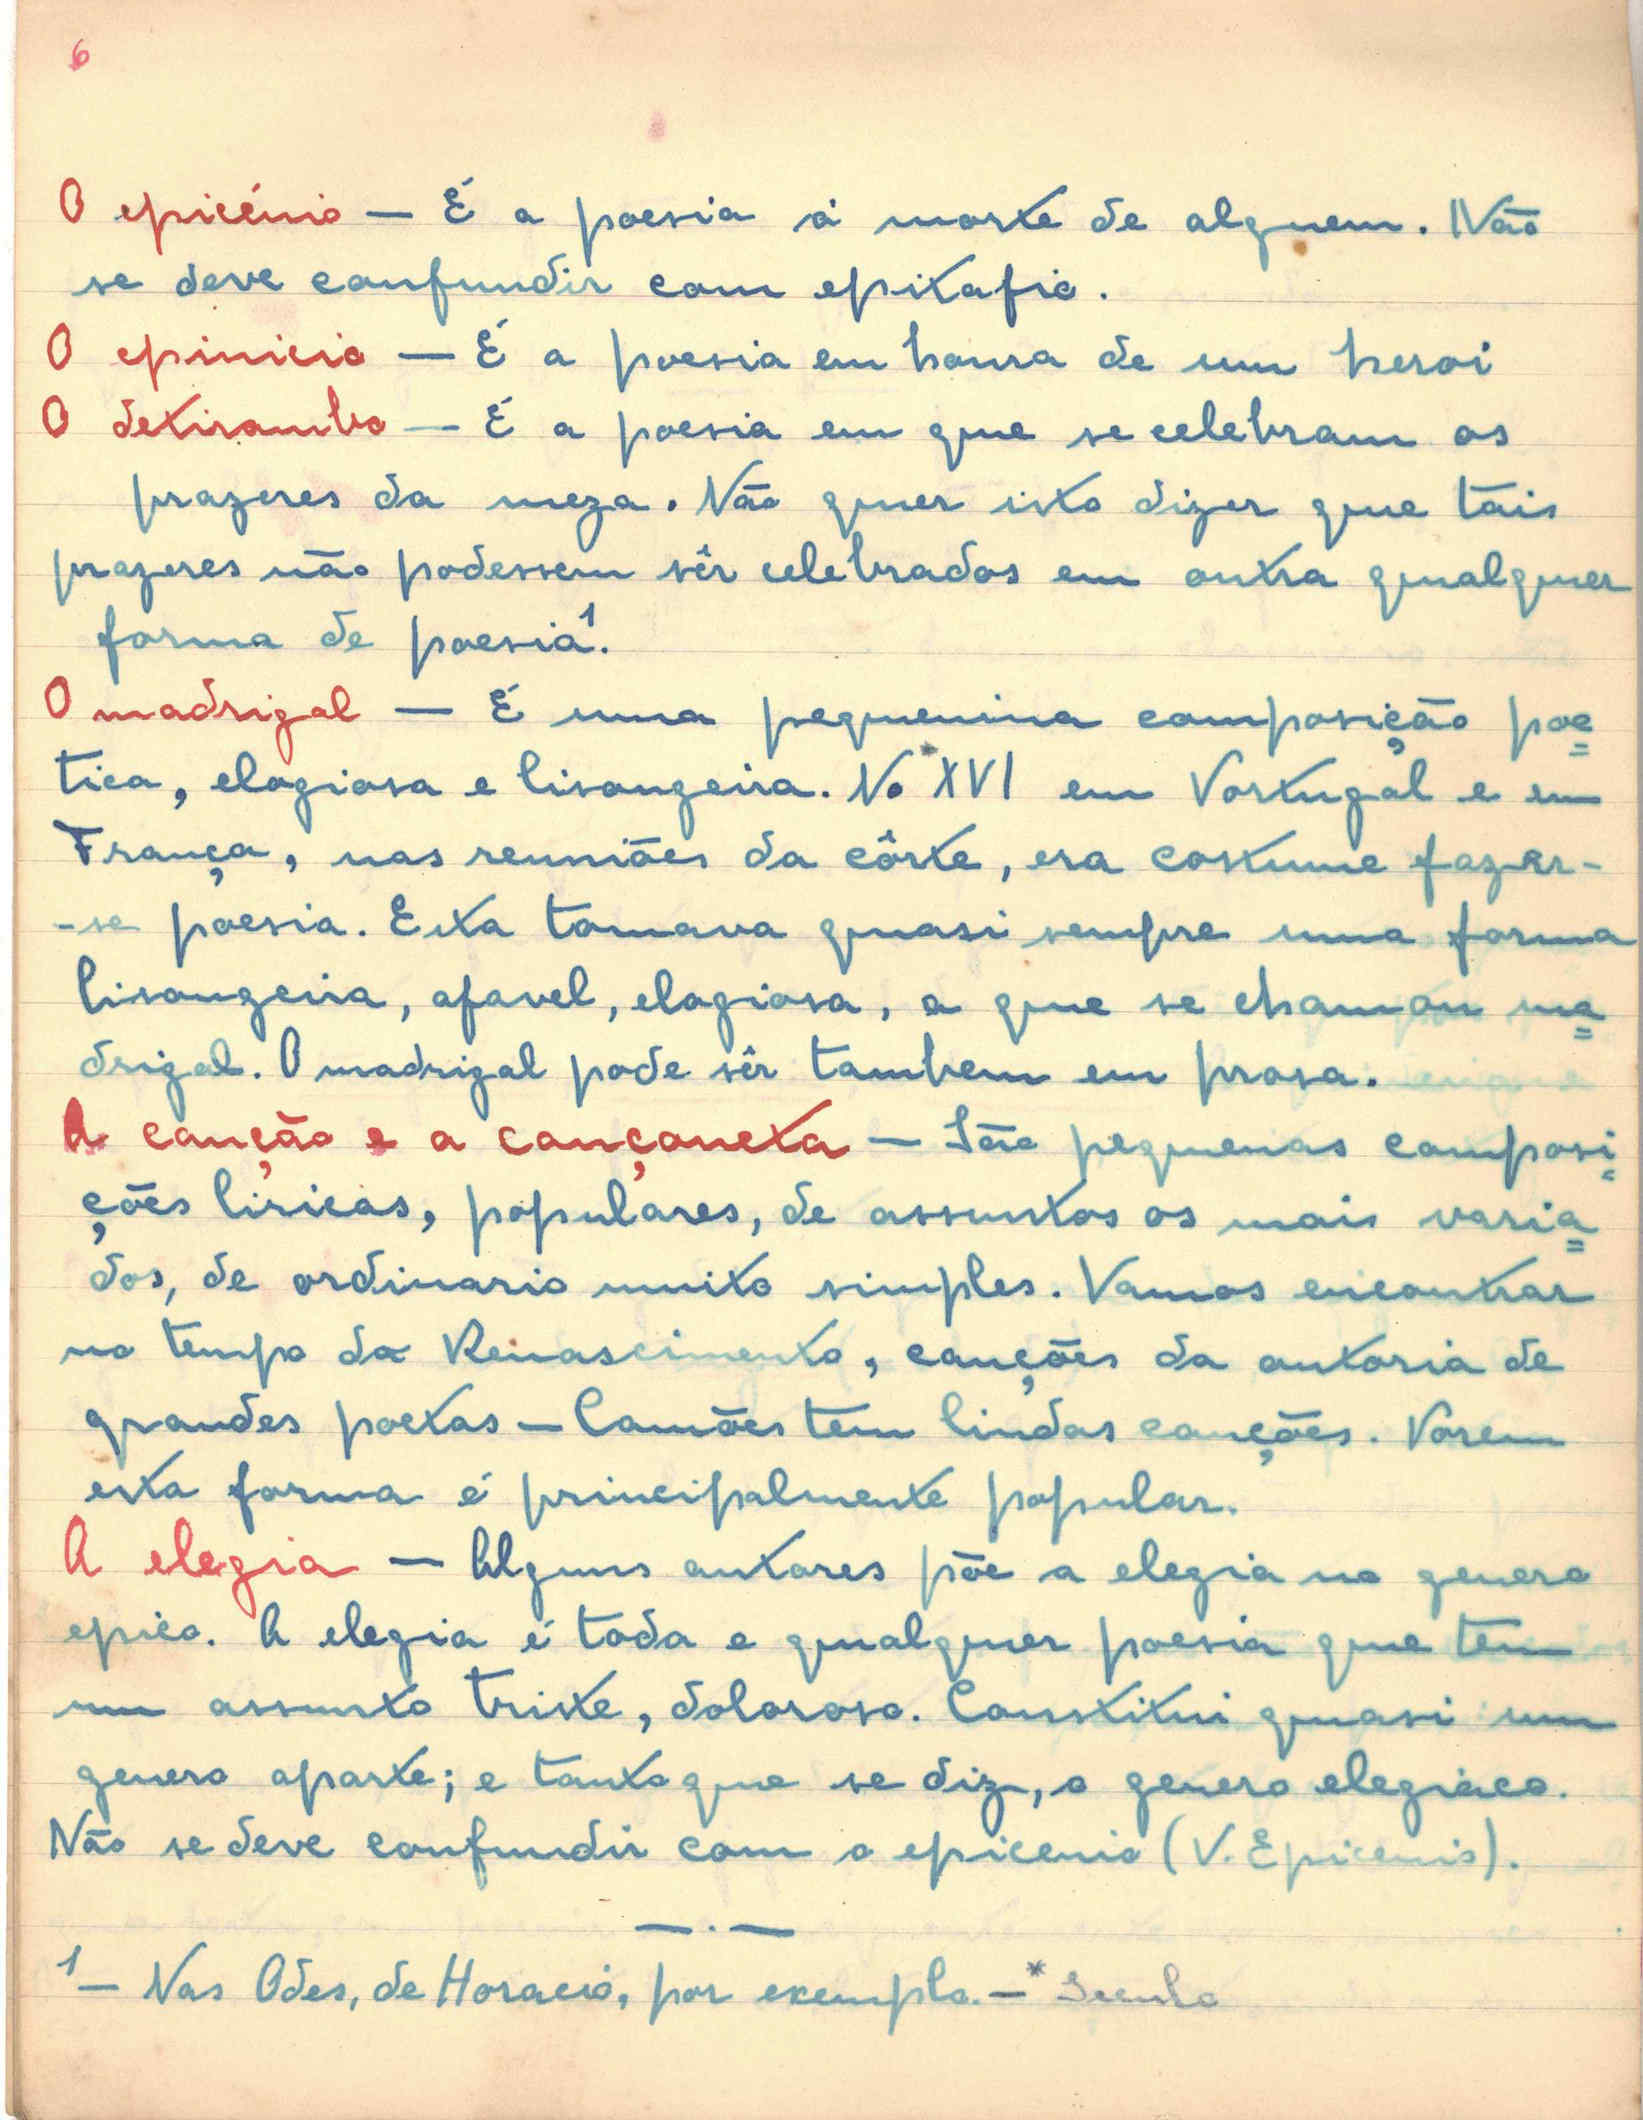 6
O epicénio — É a poesia á morte de alguem. Não
se deve confundir com epitafio.
O epinicio — É a poesia em honra de um heroi
O detirambo — É a poesia em que se celebram os
prazeres da meza. Não quer isto dizer que tais
prazeres não podessem sêr celebrados em outra qualquer
forma de poesia¹.
O madrigal — É uma pequenina composição poe=
tica, elogiosa e lisongeira. No *XVI em Portugal e em
França, nas reuniões da côrte, era costume fazer-
-se poesia. Esta tomava quasi sempre uma forma
lisongeira, afavel, elogiosa, a que se chamou ma=
drigal. O madrigal pode sêr tambem em prosa.
A canção e a cançoneta — São pequenas composi=
ções liricas, populares, de assuntos os mais varia=
dos, de ordinario muito simples. Vamos encontrar
no tempo da Renascimento, canções da autoria de
grandes poetas — Camões tem lindas canções. Porem
esta forma é principalmente popular.
A elegia — Alguns autores põe a elegia no genero
epico. A elegia é toda e qualquer poesia que tem
um assunto triste, doloroso. Constitui quasi um
genero aparte; e tanto que se diz, o genero elegiaco.
Não se deve confundir com o epicenio (V. Epicenio).
— . —
¹ — Nas Odes, de Horacio, por exemplo. — * Seculo